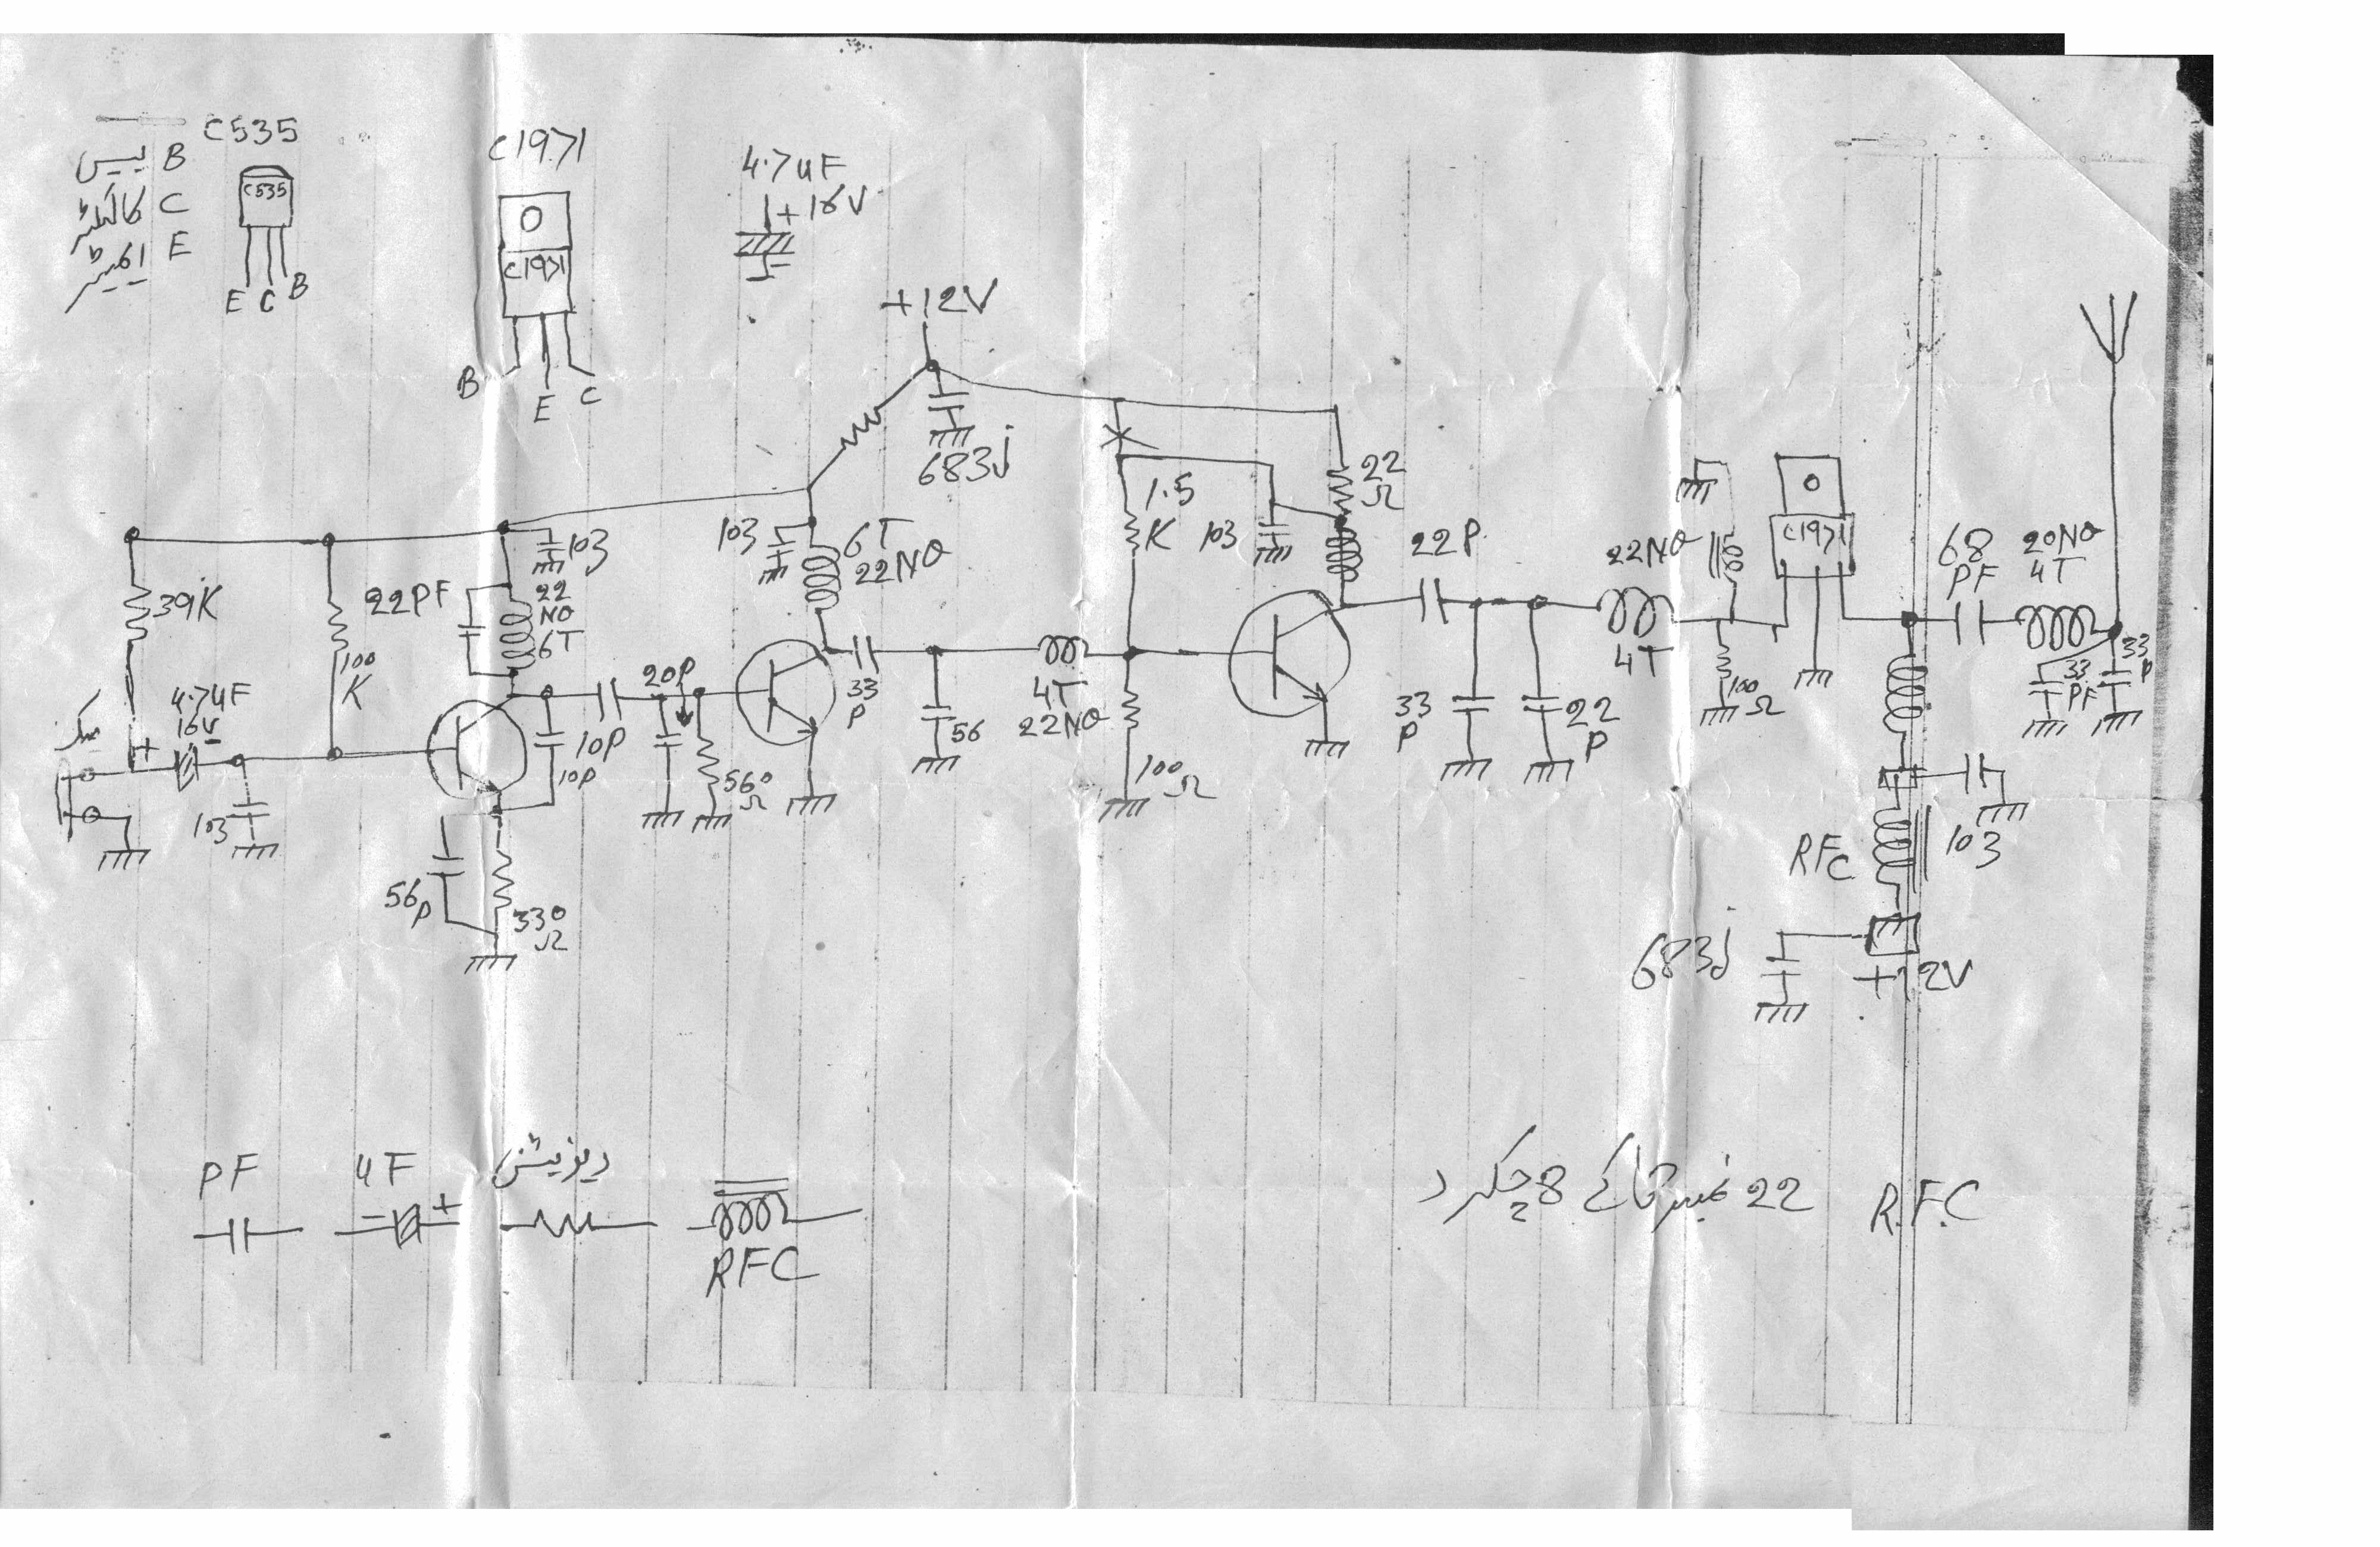 C535
بیس B
کالکٹر C
E
C535
E C B
C1971
C1971
B E C
4.7uF
+ 16V
-
+12V
683j
39K
100
K
22PF
103
22
NO
6T
103
6T
22NO
1.5
K
103
22
Ω
22P
22NO
C1971
68
PF
20NO
4T
مائک
4.7uF
16V
+ -
103
10P
10P
20P
560
Ω
33
P
56
4T
22NO
100
Ω
33
P
22
P
4T
100
Ω
33
PF
33
P
56P
330
Ω
RFC
103
683j
+12V
PF
uF
- +
RFC
22 نمبر 8 چکر
R.F.C